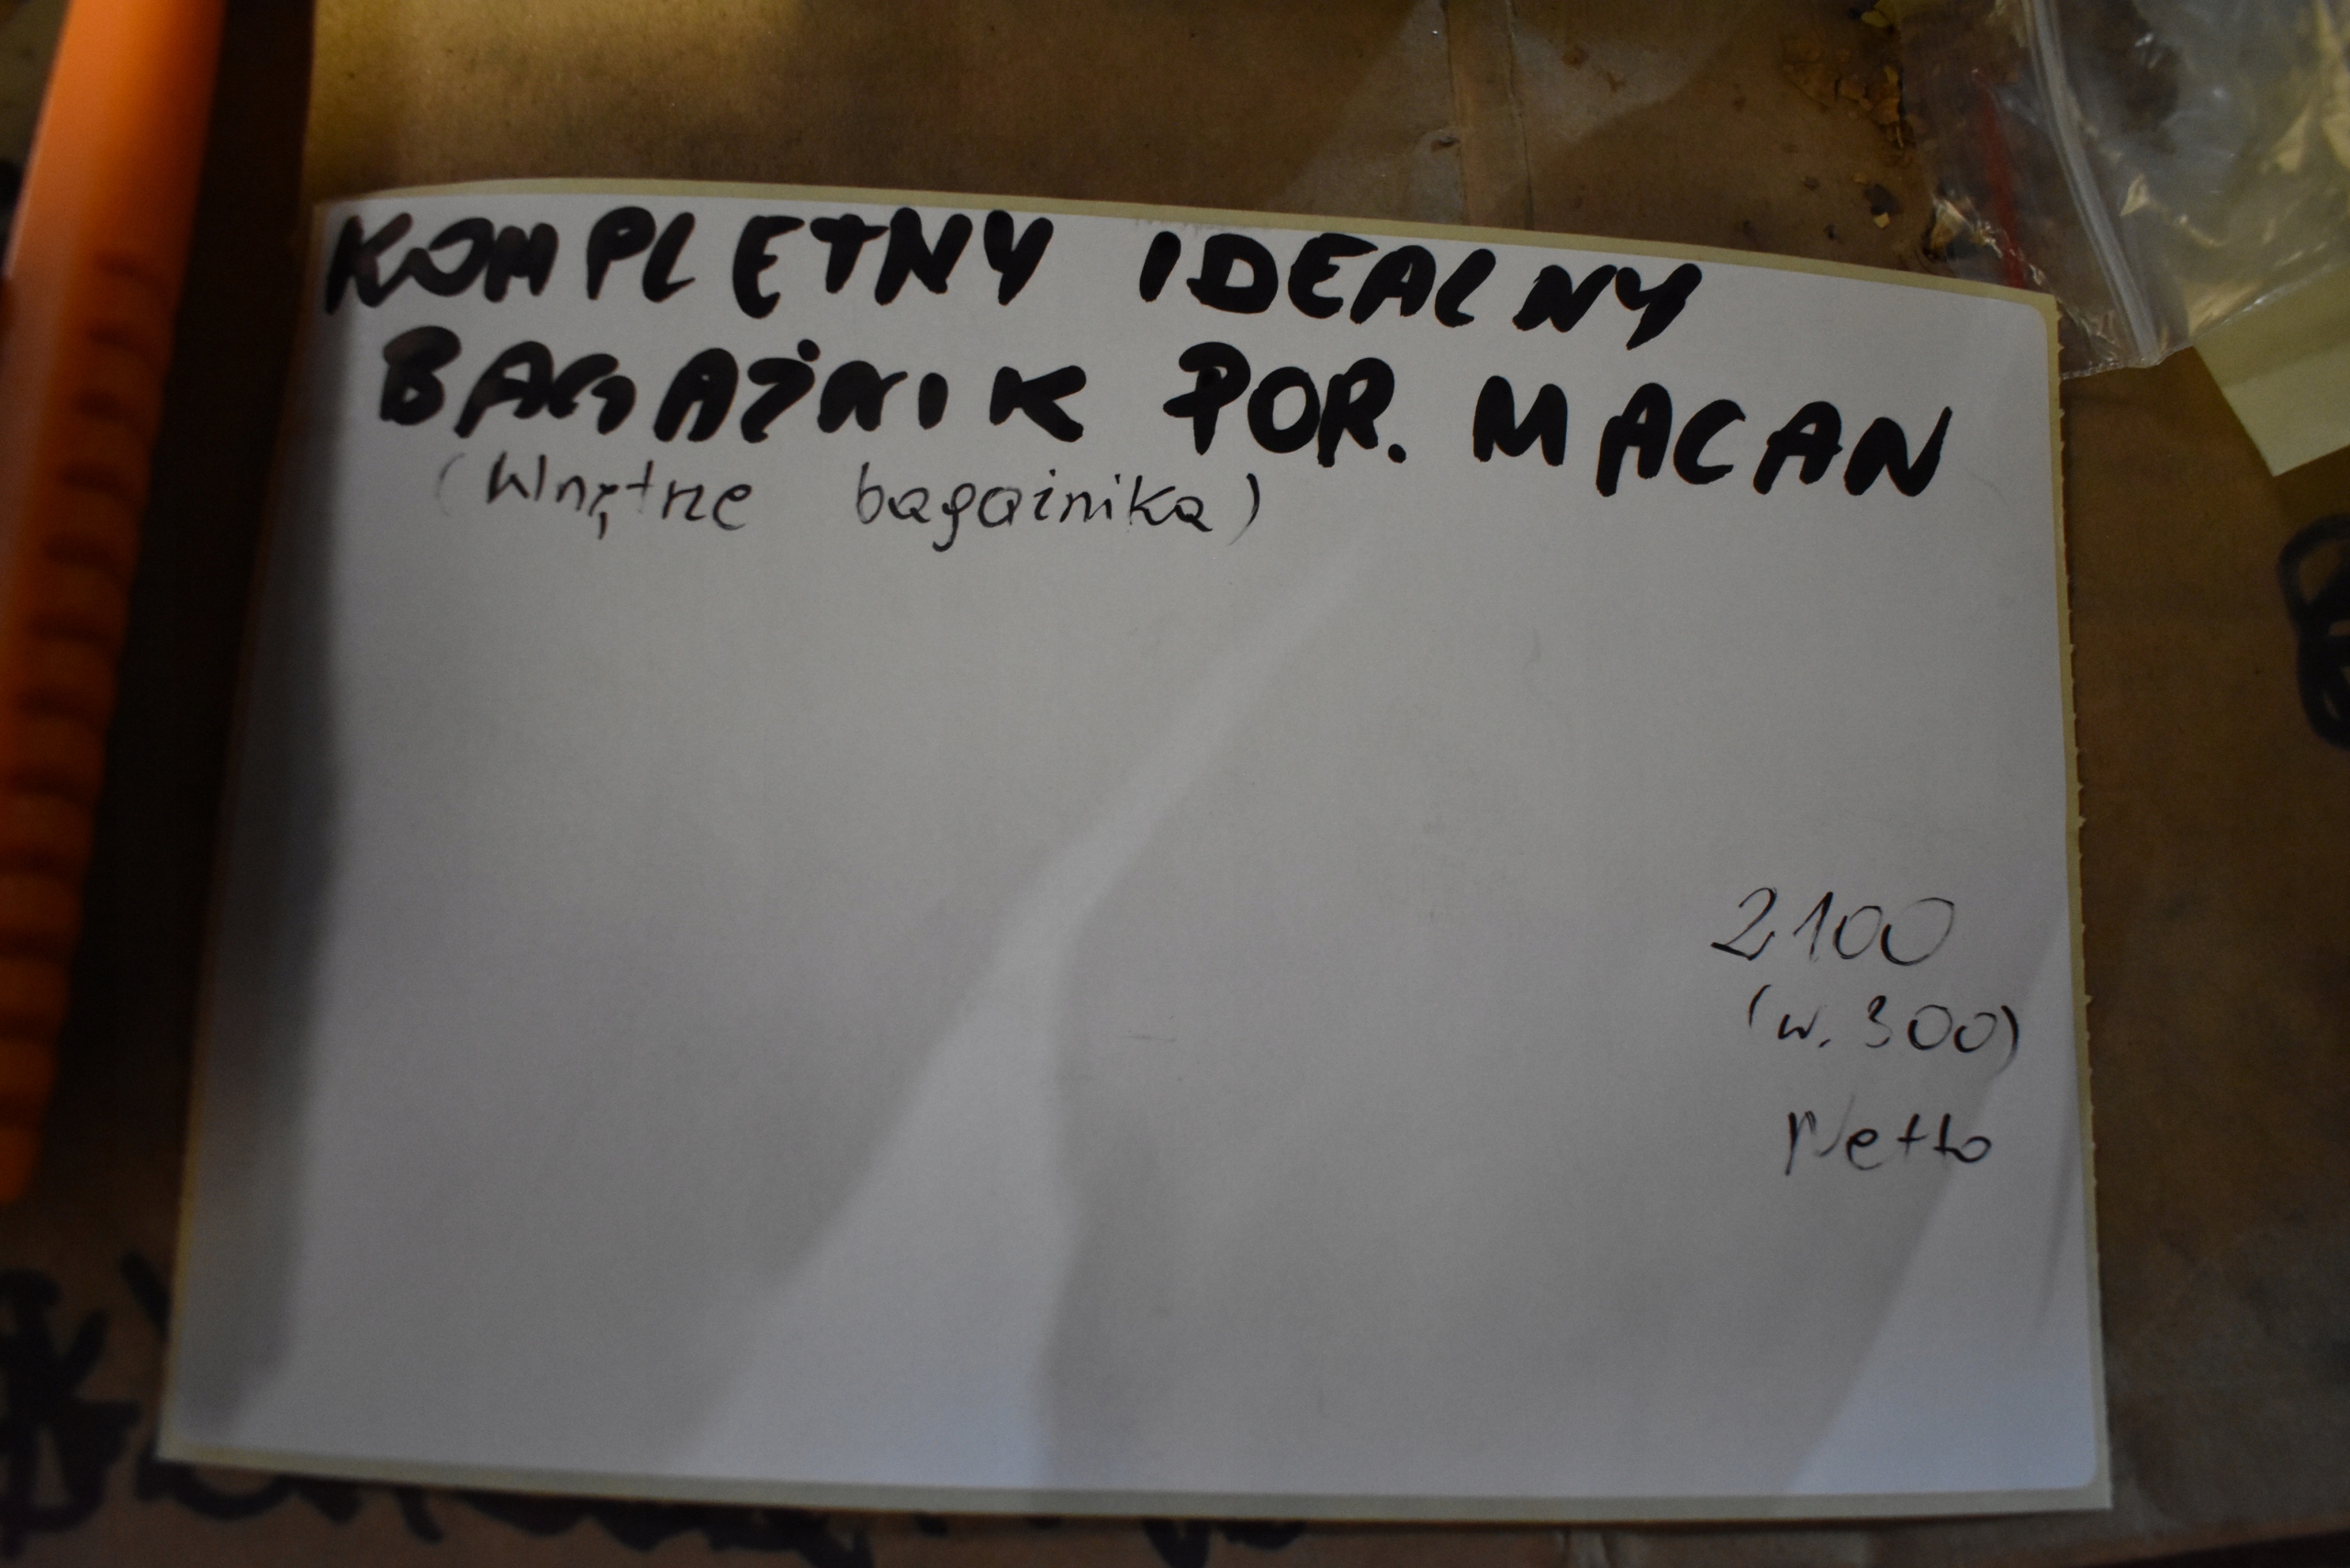 KOMPLETNY IDEALNY
BAGAŻNIK POR. MACAN
(Wnętrze bagażnika)
2100
(w. 300)
Netto